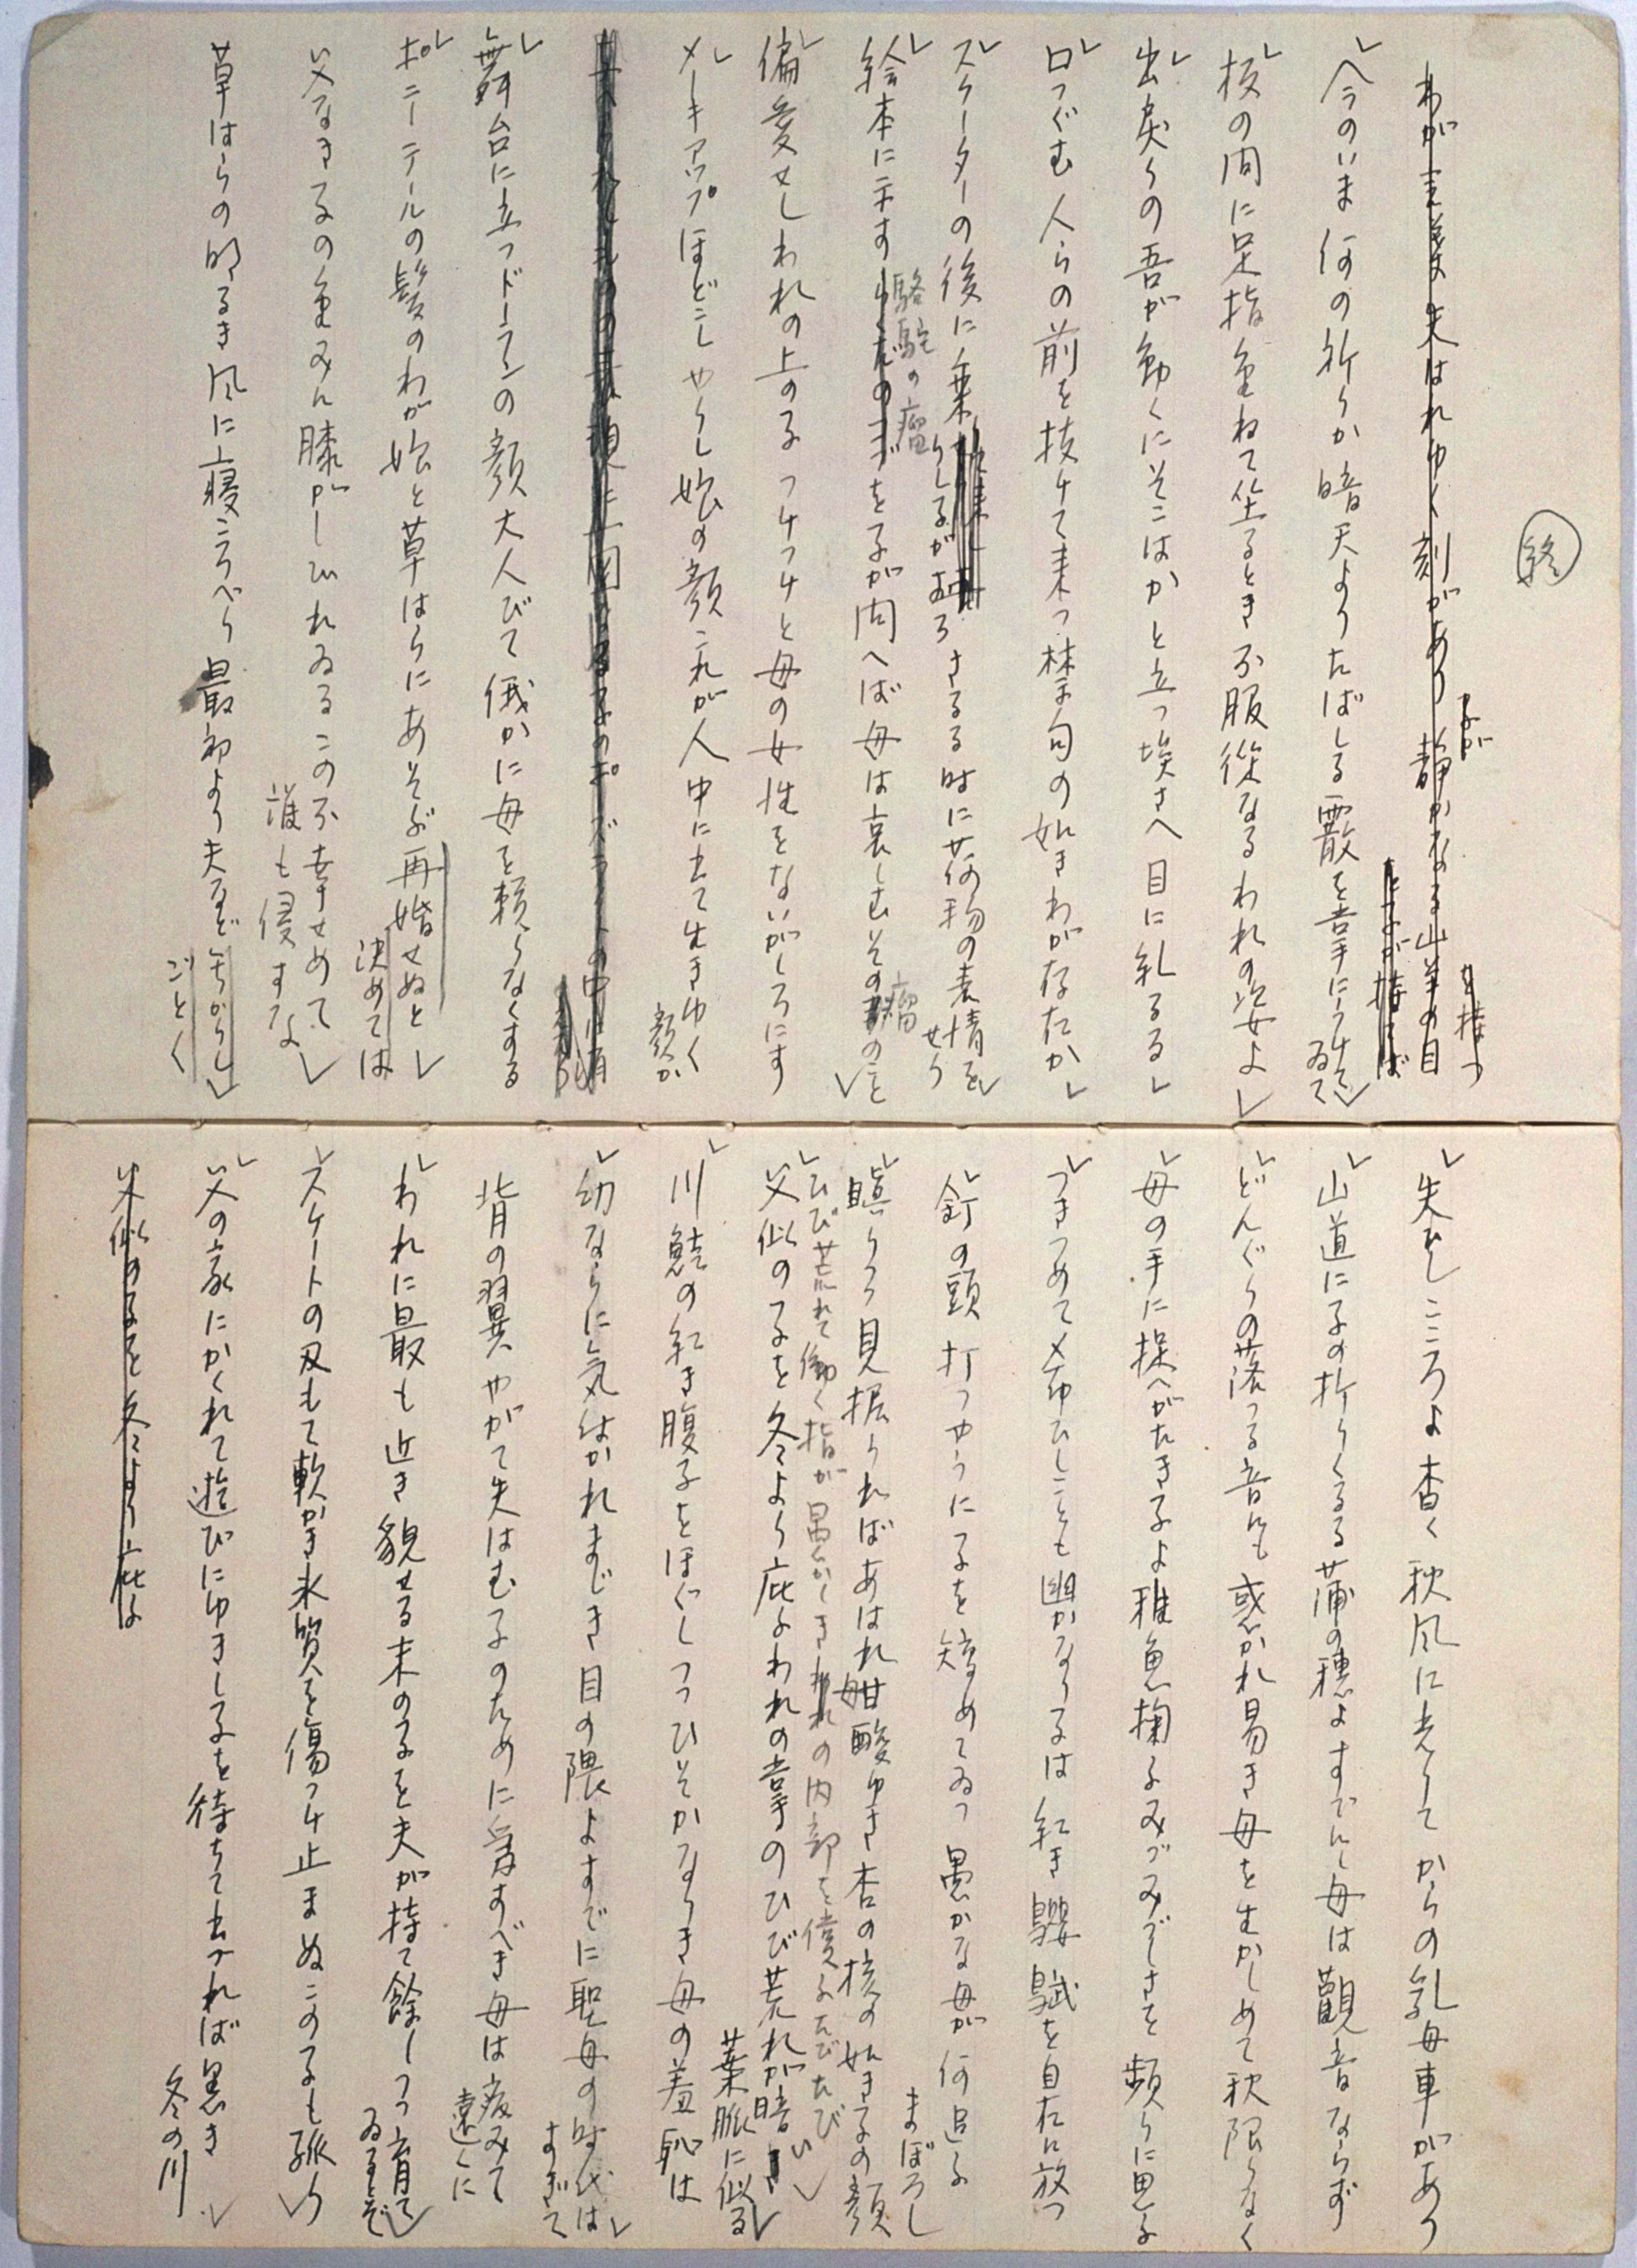 終
わが言葉失はれゆく刻があり静かなる山羊の目
よが
を持つ
今のいま何の祈りか暗天よりたばしる霰を掌にうけて
ゐて
枝の間に足指重ねて坐るとき不服従なるわれの姿よ
出戻りの吾が動くにそこはかと立つ埃さへ目に乱るる
口つぐむ人らの前を抜けて来つ禁句の如きわが存在か
スケーターの後に乗りし子がおろさるる時に荷物の表情を
せり
駱駝の瘤
絵本に示すをそのまゝ子が問へば母は哀しむその瘤のこと
偏愛せしわれの上の子つけつけと母の女性をないがしろにす
メーキアップほどこしやりし娘の顔これが人中に立て生きゆく
顔か
舞台に立つドーランの顔大人びて俄かに母を頼らなくする
ポニーテールの髪のわが娘と草はらにあそぶ再婚せぬと
決めては
父なき子の重みに膝がしびれゐるこの不幸せめて
誰も侵すな
草はらの明るき風に寝ころべり最初より夫など無かりし
ごとく
失ひしこころよ杳く秋風に光りてからの乳母車があり
山道に子の折りくるる蒲の穂よすでに母は觀音ならず
どんぐりの落つる音にも惑かれ易き母を生かしめて秋限りなく
母の手に捉へがたき子よ稚魚掬ふみづみづしさを頻りに思ふ
つきつめて希ひしことも幽かなり子は紅き鸚鵡を自在に放つ
釘の頭打つやうに子を矯めてゐつ愚かな母が何追ふ
まぼろし
瞋りつつ見据うればあはれ甘酸ゆき杏の核の如き子の顔
ひび荒れて働く指が愚かしきわれの内部を償ふたびたび
父似の子を冬より庇ふわれの掌のひび荒れが暗い
葉脈に似る
川鮭の紅き腹子をほぐしつつひそかなりき母の羞恥は
幼ならに気付かれまじき目の隈よすでに聖母の時代は
すぎて
背の翼やがて失はむ子のために愛すべき母は病みて
遠くに
われに最も近き貌せる末の子を夫が持て餘しつつ育て
ゐるとぞ
スケートの刃もて軟かき氷質を傷つけ止まぬこの子も孤り
父の家にかくれて遊びにゆきし子を待ちて出づれば黒き
冬の川
父似の子を冬より庇ふ